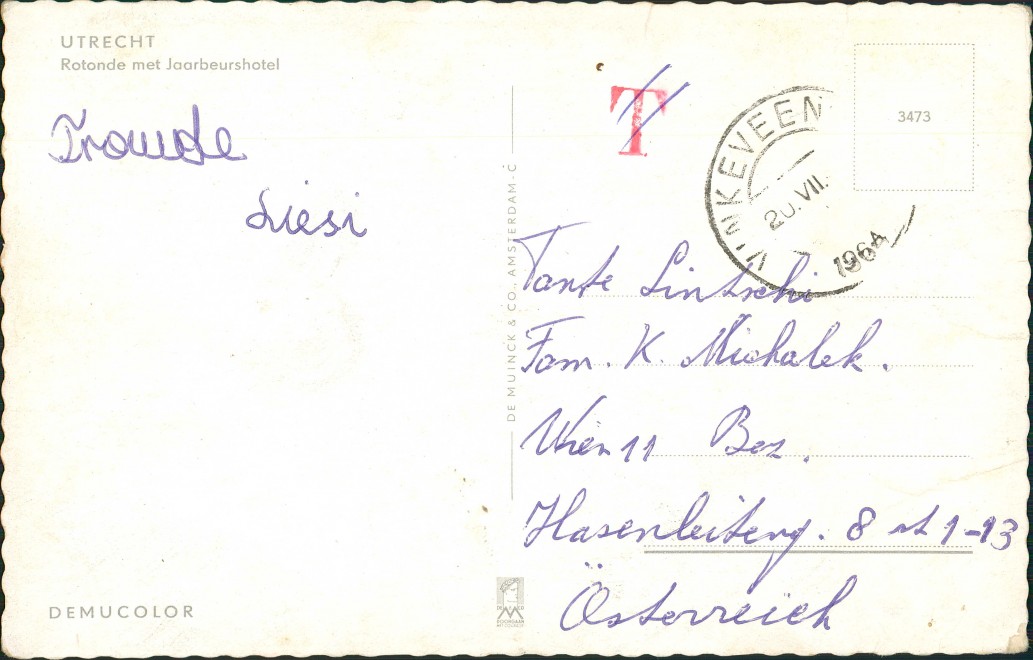 UTRECHT
Rotonde met Jaarbeurshotel
Liesi
DE MUINCK & CO., AMSTERDAM-C
DEMUCOLOR
T
VINKEVEEN
20.VII.
1964
3473
Tante Lintschi
Fam. K. Michalek.
Wien 11 Bez.
Hasenleiteng. 8 st 1-13
Österreich